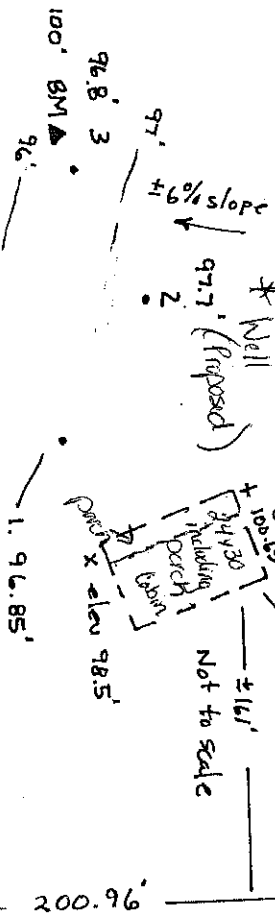 100' BM
96.8' 3
96'
97'
+6% slope
97.7'
2
* Well
(Proposed)
+
100.65
24 x 30
including
porch
Cabin
porch
x elev 98.5'
1. 96.85'
±191'
Not to scale
200.96'